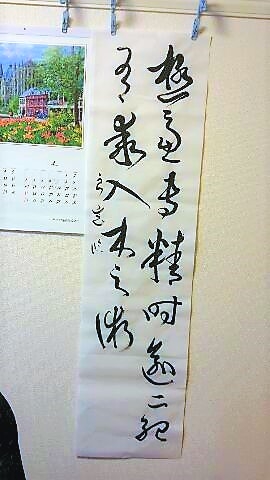 極慮專精時逾二紀
有乖入木之術
臨